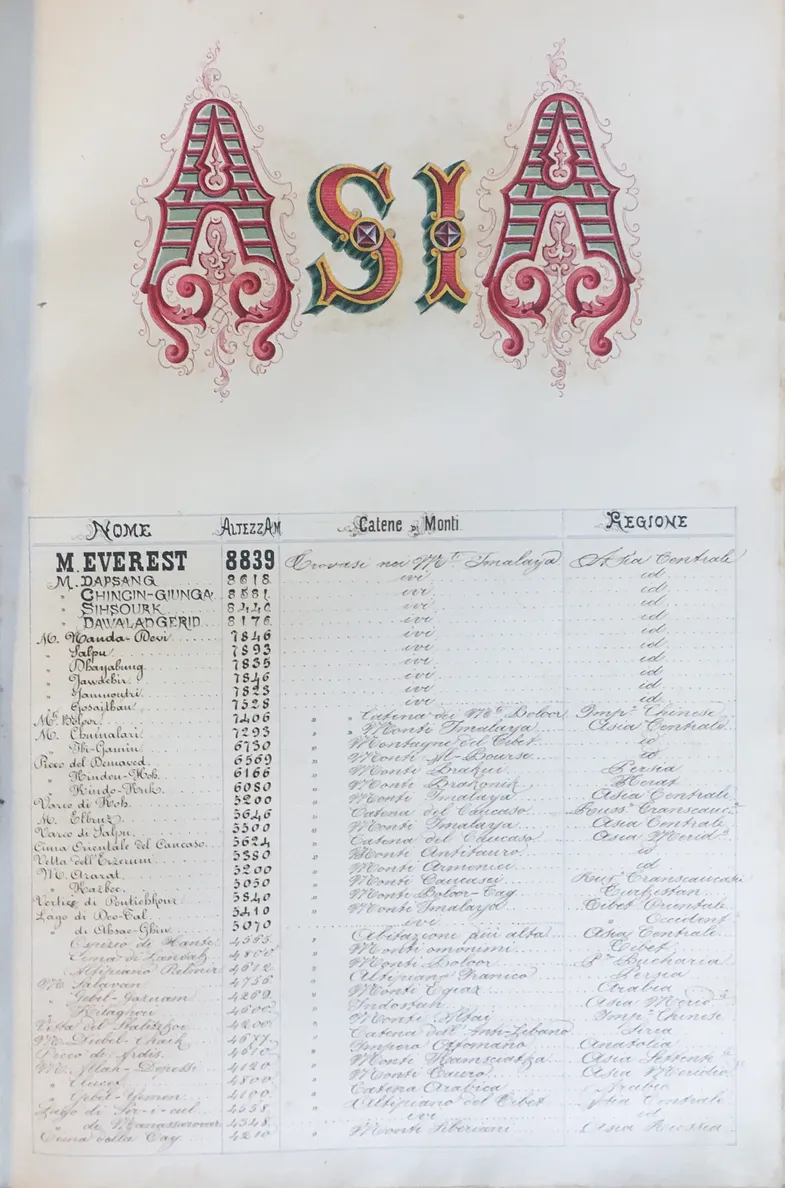 ASIA
NOME ALTEZZA M Catene di Monti REGIONE
M. EVEREST 8839 Trovasi nei Mti Imalaya Asia Centrale
M. DAPSANG 8618 ivi id
" CHINCIN-GIUNGA 8581 ivi id
" SIHSOURK 8440 ivi id
" DAWALADGERID 8176 ivi id
M. Nanda-Devi 7846 ivi id
" Salpu 7893 ivi id
" Dhayabung 7835 ivi id
" Jawdebir 7846 ivi id
" Jammoutri 7823 ivi id
" Gosaithan 7528 ivi id
Mti Bolor 7406 " Catena dei Mti Boloor Impo Chinese
M. Chumalari 7293 " Monti Imalaya Asia Centrale
" Ibi-Gamin 6730 " Montagne del Tibet id
Picco del Demaved 6569 " Monti El-Bourse id
" Hindou-Koh 6166 " Monti Persia
" Hindo-Kuk 6080 " Monti Herat
Varco di Koh 5200 " Monti Imalaya Asia Centrale
M. Elbruz 5646 " Catena del Caucaso Transcauc.
Varco di Salpu 5500 " Monti Imalaya Asia Centrale
Cima Orientale del Caucaso 5624 " Catena del Caucaso Asia Merid
Vetta dell'Erzerum 5380 " Monti Antitauro id
M. Ararat 5200 " Monti Armenia id
" Kazbec 5050 " Monti Caucasei Transcaucasia
Vertice di 5840 " Monti Boloor-Tag Turkestan
Lago di Deo-Tal 5410 " Monti Imalaya Tibet Orientale
" di 5070 " ivi " Occident
Ospizio di 4565 " Abitazioni più alta Asia Centrale
Cima di 4800 " Monti omonimi Tibet
Altipiano 4612 " Monti Boloor Bucharia
M. Salavan 4756 " Altipiano Iranico Persia
" 4269 " Monti Arabia
" 4600 " Indostan Asia Merid
Vetta del 4200 " Monti Altai Impo Chinese
M. 4677 " Catena dell'Anti-Libano Siria
Picco di Ardis 4610 " Impero Ottomano Anatolia
M. 4120 " Monti Kamsciatka Asia Settent
" 4800 " Monti Tauro Asia
" Gebel-Yemen 4100 " Catena Arabica Arabia
Lago di Sir-i-cul 4558 " Altipiano del Tibet Asia Centrale
" di Manassarovar 4548 " ivi id
Cima 4210 " Monti Siberiani Asia